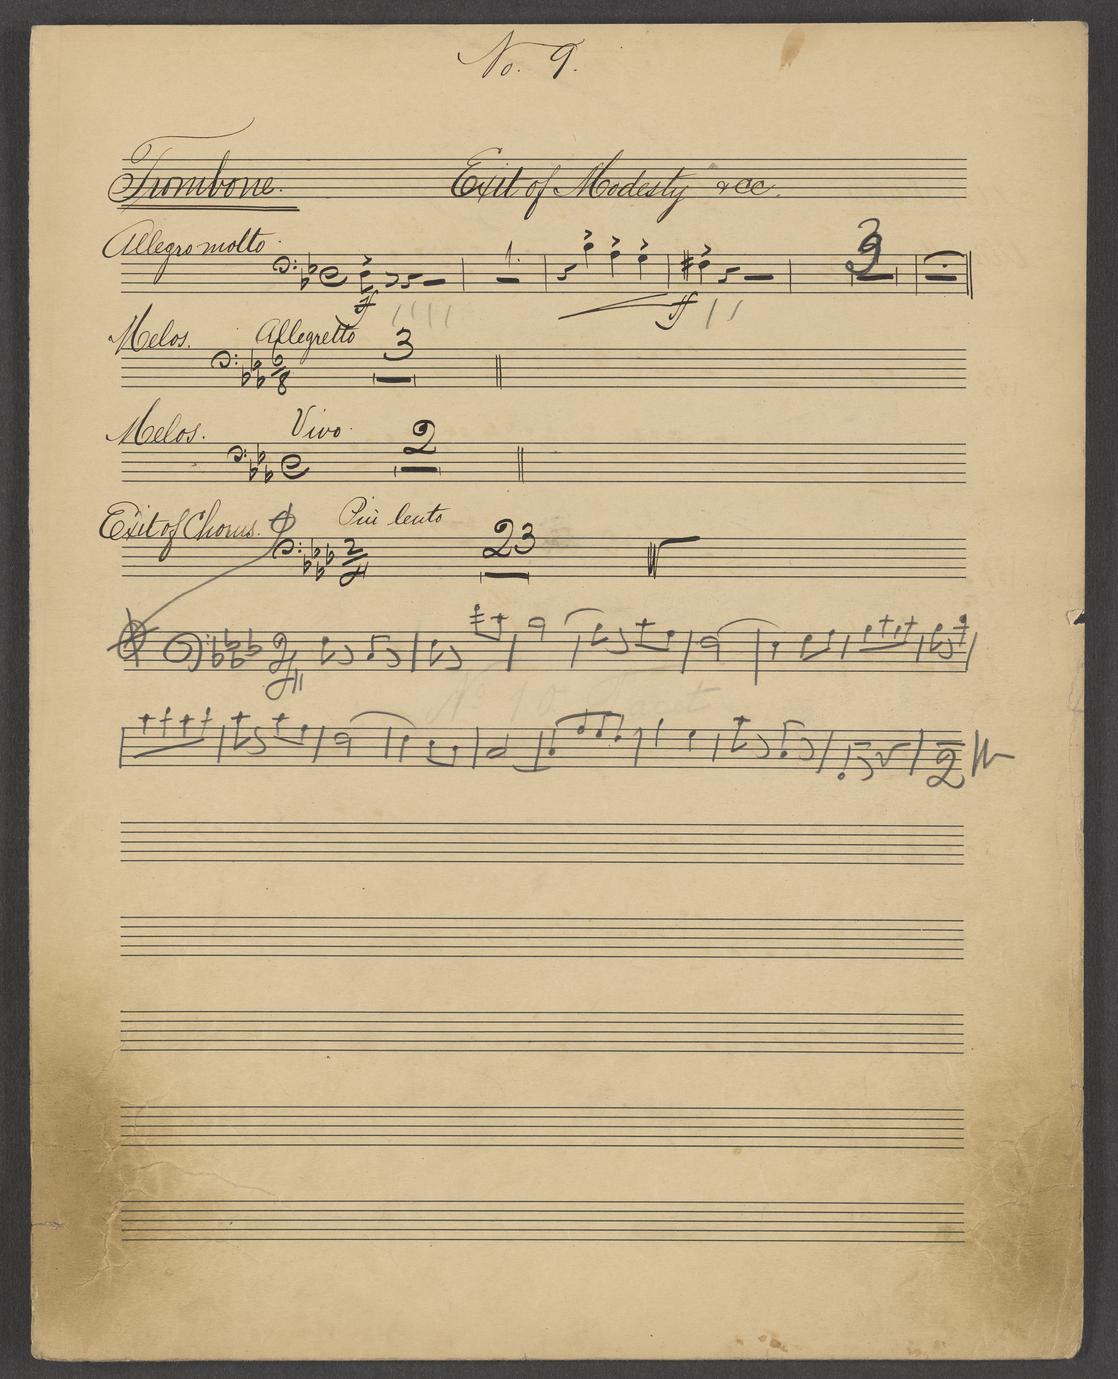 No. 9.
Trombone. Exit of Modesty &cc.
Allegro molto.
3
ff ff
Melos. Allegretto
6 8 3
Melos. Vivo.
2
Exit of Chorus. Più lento
2 4 23
2 4
No 10 Tacet
2